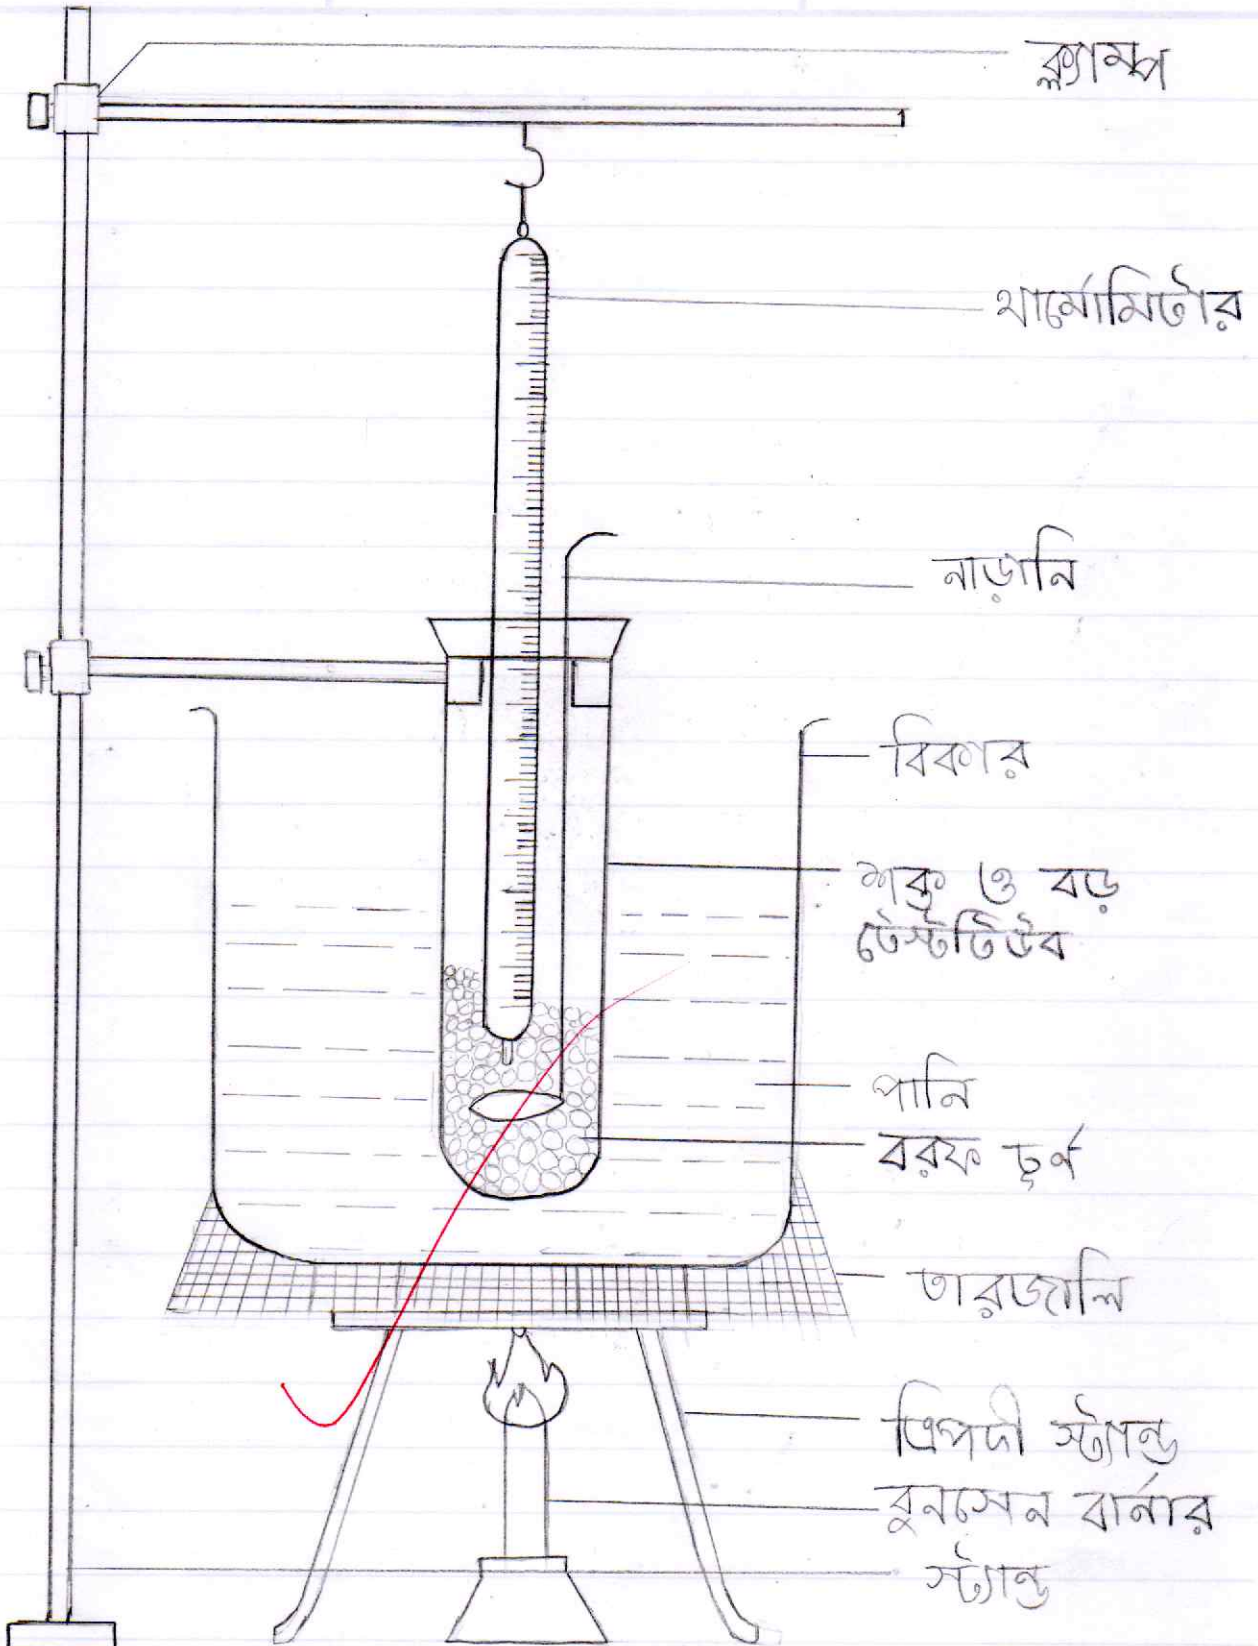 ক্ল্যাম্প
থার্মোমিটার
নাড়ানি
বিকার
শক্ত ও বড়
টেস্টটিউব
পানি
বরফ চূর্ন
তারজালি
ত্রিপদী স্ট্যান্ড
বুনসেন বার্নার
স্ট্যান্ড